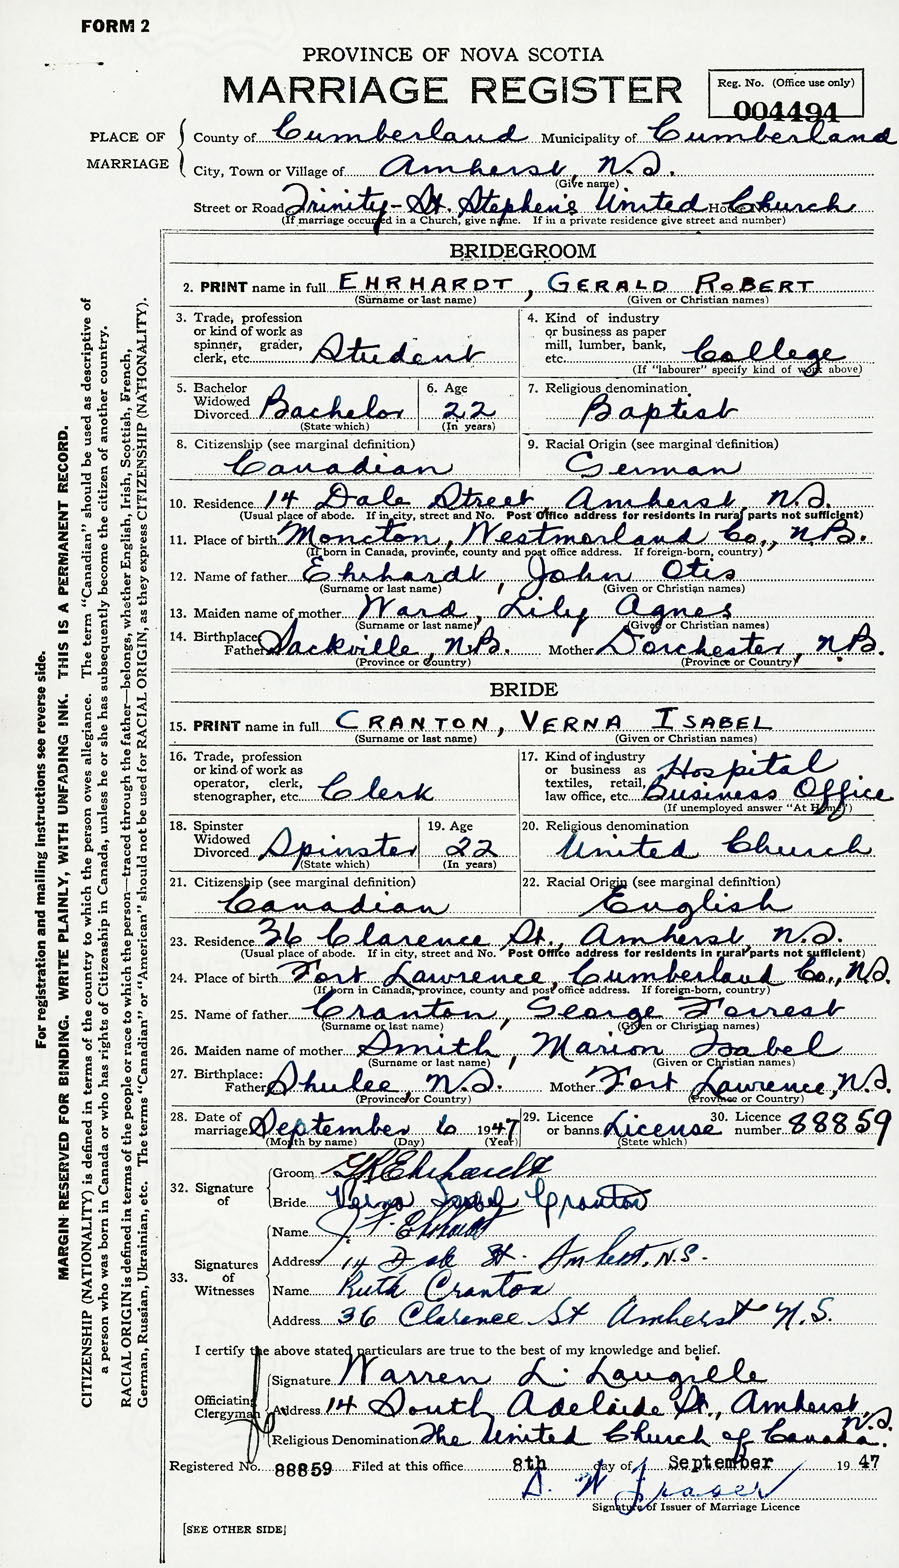 FORM 2
PROVINCE OF NOVA SCOTIA
MARRIAGE REGISTER
Reg. No. (Office use only)
004494
PLACE OF MARRIAGE
County of Cumberland Municipality of Cumberland
City, Town or Village of Amherst, N.S.
(Give name)
Street or Road Trinity-St. Stephen's United Church
(If marriage occurred in a Church, give name. If in a private residence give street and number)
BRIDEGROOM
2. PRINT name in full EHRHARDT, GERALD ROBERT
(Surname or last name) (Given or Christian names)
3. Trade, profession or kind of work as spinner, grader, clerk, etc. Student
4. Kind of industry or business as paper mill, lumber, bank, etc. College
(If "labourer" specify kind of work above)
5. Bachelor Widowed Divorced Bachelor
(State which)
6. Age 22
(In years)
7. Religious denomination
Baptist
8. Citizenship (see marginal definition)
Canadian
9. Racial Origin (see marginal definition)
German
10. Residence 14 Dale Street, Amherst, N.S.
(Usual place of abode. If in city, street and No. Post Office address for residents in rural parts not sufficient)
11. Place of birth Moncton, Westmorland Co., N.B.
(If born in Canada, province, county and post office address. If foreign-born, country)
12. Name of father Ehrhardt, John Otis
(Surname or last name) (Given or Christian names)
13. Maiden name of mother Ward, Lily Agnes
(Surname or last name) (Given or Christian names)
14. Birthplace: Father Sackville, N.B. Mother Dorchester, N.B.
(Province or Country) (Province or Country)
BRIDE
15. PRINT name in full CRANTON, VERNA ISABEL
(Surname or last name) (Given or Christian names)
16. Trade, profession or kind of work as operator, clerk, stenographer, etc. Clerk
17. Kind of industry or business as textiles, retail, law office, etc. Hospital Business Office
(If unemployed answer "At Home")
18. Spinster Widowed Divorced Spinster
(State which)
19. Age 22
(In years)
20. Religious denomination
United Church
21. Citizenship (see marginal definition)
Canadian
22. Racial Origin (see marginal definition)
English
23. Residence 36 Clarence St., Amherst, N.S.
(Usual place of abode. If in city, street and No. Post Office address for residents in rural parts not sufficient)
24. Place of birth Fort Lawrence, Cumberland Co., N.S.
(If born in Canada, province, county and post office address. If foreign-born, country)
25. Name of father Cranton, George Forrest
(Surname or last name) (Given or Christian names)
26. Maiden name of mother Smith, Marion Isabel
(Surname or last name) (Given or Christian names)
27. Birthplace: Father Shulee, N.S. Mother Fort Lawrence, N.S.
(Province or Country) (Province or Country)
28. Date of marriage September 6 1947
(Month by name) (Day) (Year)
29. Licence or banns License
(State which)
30. Licence number 88859
32. Signature of
Groom GR Ehrhardt
Bride Verna Isabel Cranton
33. Signatures of Witnesses
Name
Address 14 Dale St. Amherst, N.S.
Name Ruth Cranton
Address 36 Clarence St Amherst N.S.
I certify the above stated particulars are true to the best of my knowledge and belief.
Officiating Clergyman
Signature Warren L.
Address 14 South Adelaide St., Amherst, N.S.
Religious Denomination The United Church of Canada.
Registered No. 88859 Filed at this office 8th day of September 1947
Fraser
Signature of Issuer of Marriage Licence
[SEE OTHER SIDE]
For registration and mailing instructions see reverse side.
MARGIN RESERVED FOR BINDING. WRITE PLAINLY, WITH UNFADING INK. THIS IS A PERMANENT RECORD.
CITIZENSHIP (NATIONALITY) is defined in terms of the country to which the person owes allegiance. The term "Canadian" should be used as descriptive of
a person who was born in Canada or who has rights of Citizenship in Canada, unless he or she has subsequently become the citizen of another country.
RACIAL ORIGIN is defined in terms of the people or race to which the person—traced through the father—belongs, whether English, Irish, Scottish, French,
German, Russian, Ukrainian, etc. The terms "Canadian" or "American" should not be used for RACIAL ORIGIN, as they express CITIZENSHIP (NATIONALITY).